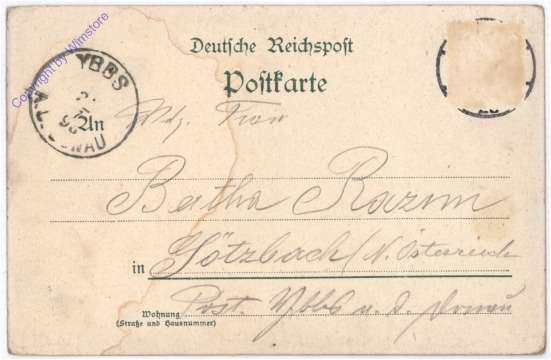 Copyright by Wimstore
Deutsche Reichspost
Postkarte
YBBS
A. D. DONAU
An
Frau
Bertha Razim
in Götzbach (N. Österreich
Wohnung
(Straße und Hausnummer)
Post. Ybbs a. d. Donau